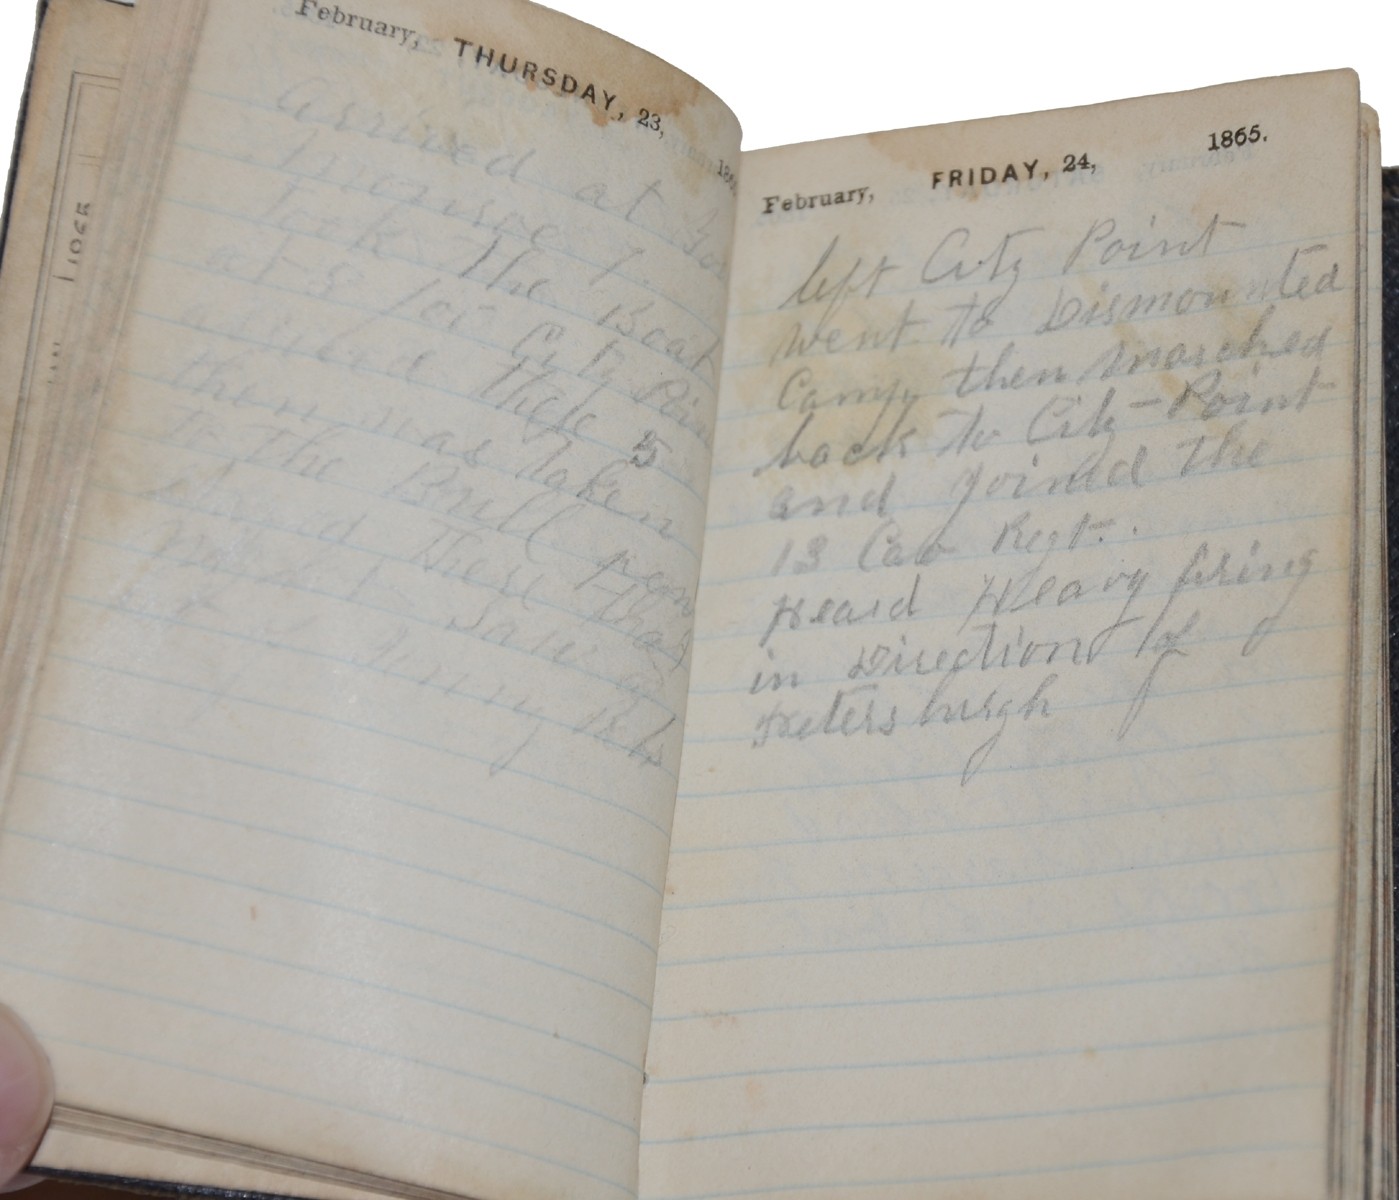 February, THURSDAY, 23, 186
arrived at For
monroe 7.
took the Boat
at 8 for City Poin
arived there 5
then was taken
to the Bull pen
stayed there that
night. Saw a
lot of Jonny Rebs
February, FRIDAY, 24, 1865.
left City Point
went to Dismounted
Camp, then marched
back to City-Point
and joined the
13 Cav Regt.
Heard Heavy firing
in Direction of
Petersburgh